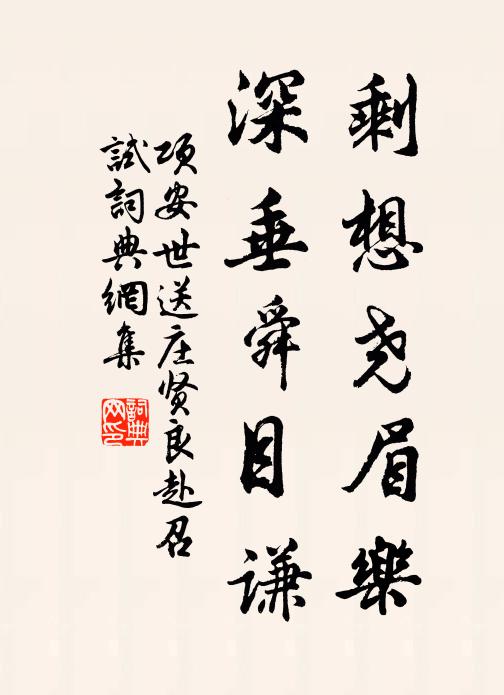 剩想尧眉樂
深垂舜目謙
项安世送庄贤良赴召
試詞典網集
詞典
网印